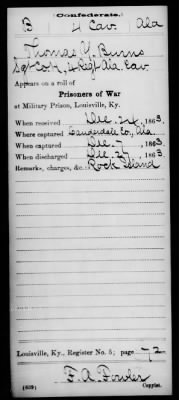 Confederate.
B 4 Cav. Ala
Thomas Y. Burns
Sgt Co. K, 4 Regt Ala. Cav.
Appears on a roll of
Prisoners of War
at Military Prison, Louisville, Ky.
When received Dec. 24, 1863
Where captured Lauderdale Co., Ala.
When captured Dec. 7, 1863
When discharged Dec. 27, 1863
Remarks, charges, &c. Rock Island
Louisville, Ky., Register No. 5; page 72
F. A. Fowler
(639) Copyist.